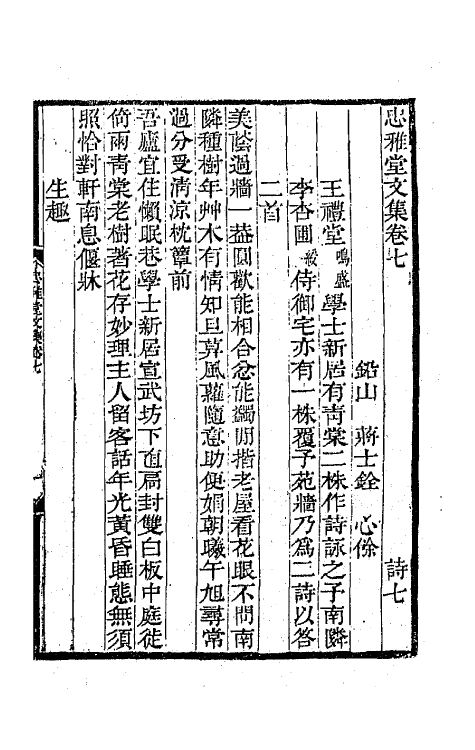 忠雅堂文集卷七 詩七
鉛山 蔣士銓 心餘
王禮堂鳴盛學士新居有靑棠二株作詩詠之予南隣
李杏圃侍御宅亦有一株覆予苑牆乃爲二詩以答
二首
美蔭過牆一葢圓歡能相合忿能蠲開揩老屋看花眼不問南
隣種樹年艸木有情知旦莫風蘿隨意助便娟朝曦午旭尋常
過分受淸涼枕簟前
吾廬宜住懶眠巷學士新居宣武坊下直扄封雙白板中庭徙
倚兩靑棠老樹著花存妙理主人留客話年光黃昏睡態無須
照恰對軒南息偃牀
生趣
忠雅堂文集卷七